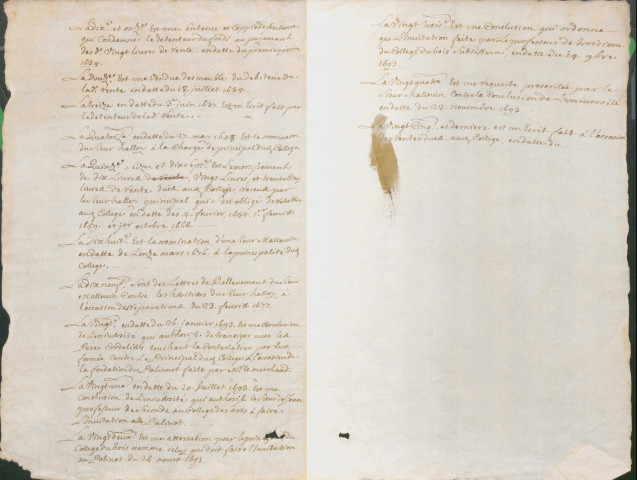 La dixe. et onze. est une sentence et coppie de sentence
qui condamne le detenteur du fonds au payement
des d. vingt livres de rente, endatte du premier juin
1634.
La douze. est une vendue des meubles du debiteur de
lad. rente endatte du 18 juillet 1634.
La treize. endatte du juin 1637. est un Ecrit fait par
le detenteur de lad. Rente.
La Quatorze. endatte du 27 mars 1648 est la nomination
du sieur halley à la Charge de principal dud. College
La Quinze. seize. et dix sept. est l'amortissement
de dix Livres de rente vingt Livres, et trente
livres de rente dues aud. College receu par
le sieur halley principal qui s'est obligé de
aud. College endatte des 4. fevrier 1658. fevrier
1659. et octobre 1666.
La dix huite. Est la nomination d'un sieur Malouin
endatte de Lonze mars 1676. à la principalité dud.
College.
La dix neuf. sont des Lettres de Relievement du sieur
Malouin Contre les heritiers du sieur halley à
l'occasion des reparations du 23. fevrier 1677.
La vingt. endatte du 26 janvier 1693. est une Conclusion
de Luniversité qui authorise de transiger avec les
Peres Cordeliers touchant la contestation par eux
formée contre Le Principal dud. College à l'occasion de
la fondation du Palinot faite par Mr. le marchand.
La vingt une endatte du 20 juillet 1693 est une
conclusion de Luniversité qui authorise le sieur
professeur de seconde au College des arts à faire
l'invitation au Palinot.
La vingt deux est une attestation par le principal du
College du bois comme celuy qui doit faire l'invitation
au Palinot du 28 aoust 1693.
La vingt trois. Est une Conclusion qui ordonne
que l'invitation faite par le professeur de troisieme
du College du bois subsistera endatte du 24 9bre.
1693.
La vingt quatre Est une requeste presentée par le
sieur Contre la Conclusion de Luniversité
endatte du 23 novembre 1693.
La vingt Cinq. et derniere est un Ecrit fait à l'occasion
des rentes dues aux College, endatte du